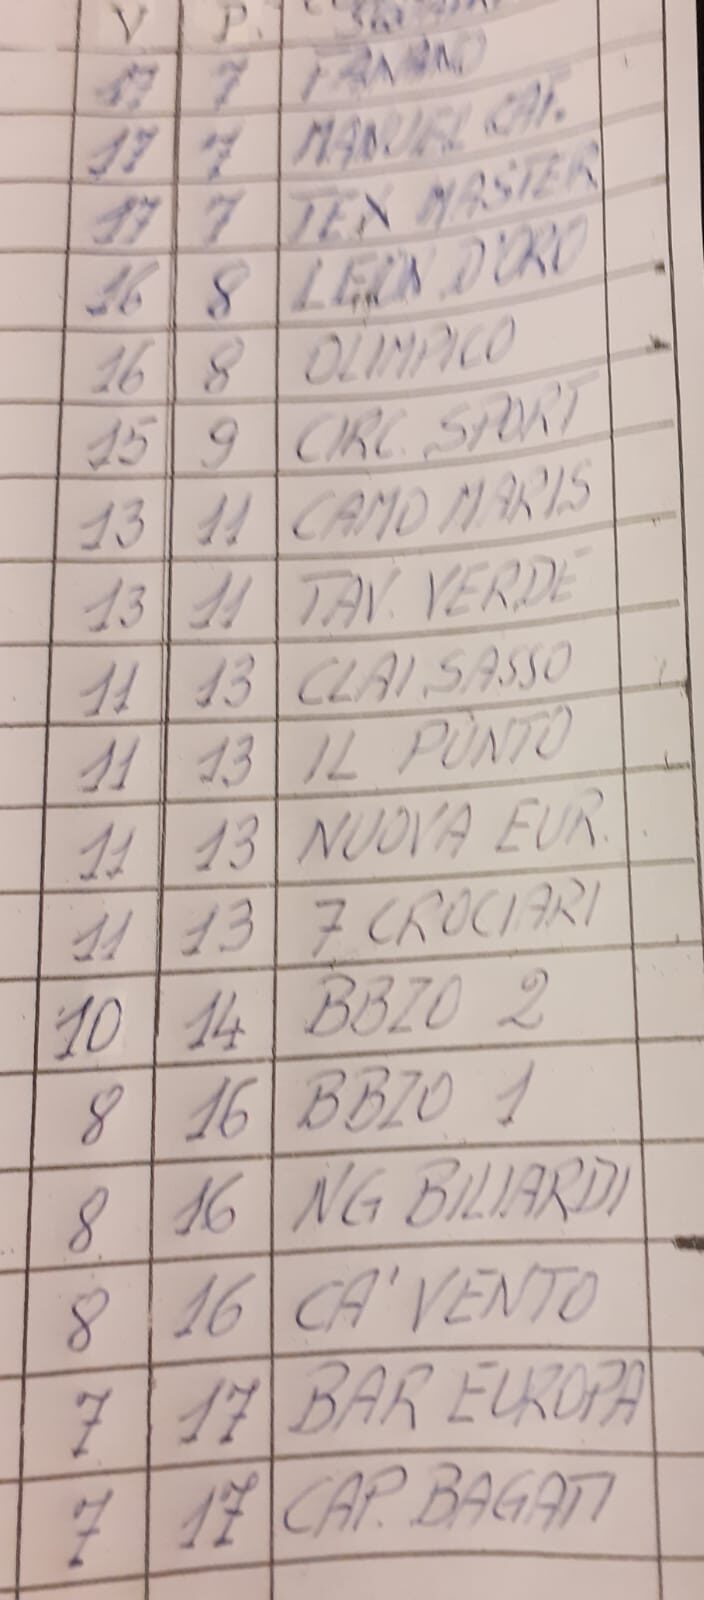 V P. SQUADRE
17 7 FANANO
17 7 MANUEL CAF.
17 7 TEX MASTER
16 8 LEON D'ORO
16 8 OLIMPICO
15 9 CIRC. SPORT
13 11 CAMO MARIS
13 11 TAV. VERDE
11 13 CLAI SASSO
11 13 IL PUNTO
11 13 NUOVA EUR.
11 13 7 CROCIARI
10 14 BBZO 2
8 16 BBZO 1
8 16 NG BILIARDI
8 16 CA' VENTO
7 17 BAR EUROPA
7 17 CAP. BAGATI